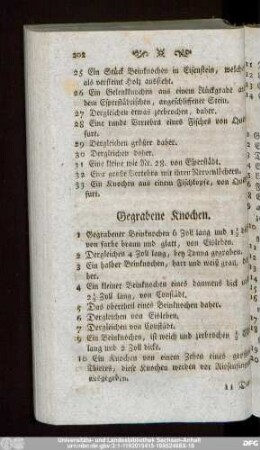 202
25 Ein Stück Beinknochen in Eisenstein, welch
als versteint Holz aussieht.
26 Ein Gelenkknochen aus einem Rückgrade a
dem Esperstädtischen, angeschliffener Stein.
27 Dergleichen etwas zerbrochen, daher.
28 Eine runde Vertebra eines Fisches von Que
furt.
29 Dergleichen größer daher.
30 Dergleichen daher.
31 Eine kleine wie Nr. 28. von Esperstädt.
32 Eine große Vertebra mit ihren Nervenlöchern.
33 Ein Knochen aus einem Fischkopfe, von Que
furt.
Gegrabene Knochen.
1 Gegrabener Beinknochen 6 Zoll lang und 1½
von farbe braun und glatt, von Eisleben.
2 Dergleichen 4 Zoll lang, bey Tonna gegraben.
3 Ein halber Beinknochen, hart und weiß gra
ber.
4 Ein kleiner Beinknochen eines daumens dick
2½ Zoll lang, von Constädt.
5 Das obertheil eines Beinknochen daher.
6 Dergleichen von Eisleben.
7 Dergleichen von Constädt.
9 Ein Beinknochen, ist weich und zerbrochen
lang und 2 Zoll dicke.
10 Ein Knochen von einem Zehen eines gro
Thieres; diese Knochen werden vor Riesen
ausgegeben.
11
Universitäts- und Landesbibliothek Sachsen-Anhalt
DFG